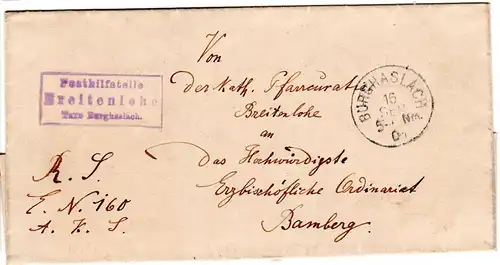 Posthilfstelle
Breitenlohe
Taxe Burghaslach.
R. S.
E. N. 160
A. K. S.
Von
der Kath. Pfarrcurat
Breitenlohe
an
das Hochwürdigste
Erzbischöfliche Ordinariat
Bamberg.
BURGHASLACH
16
SEP
Nm